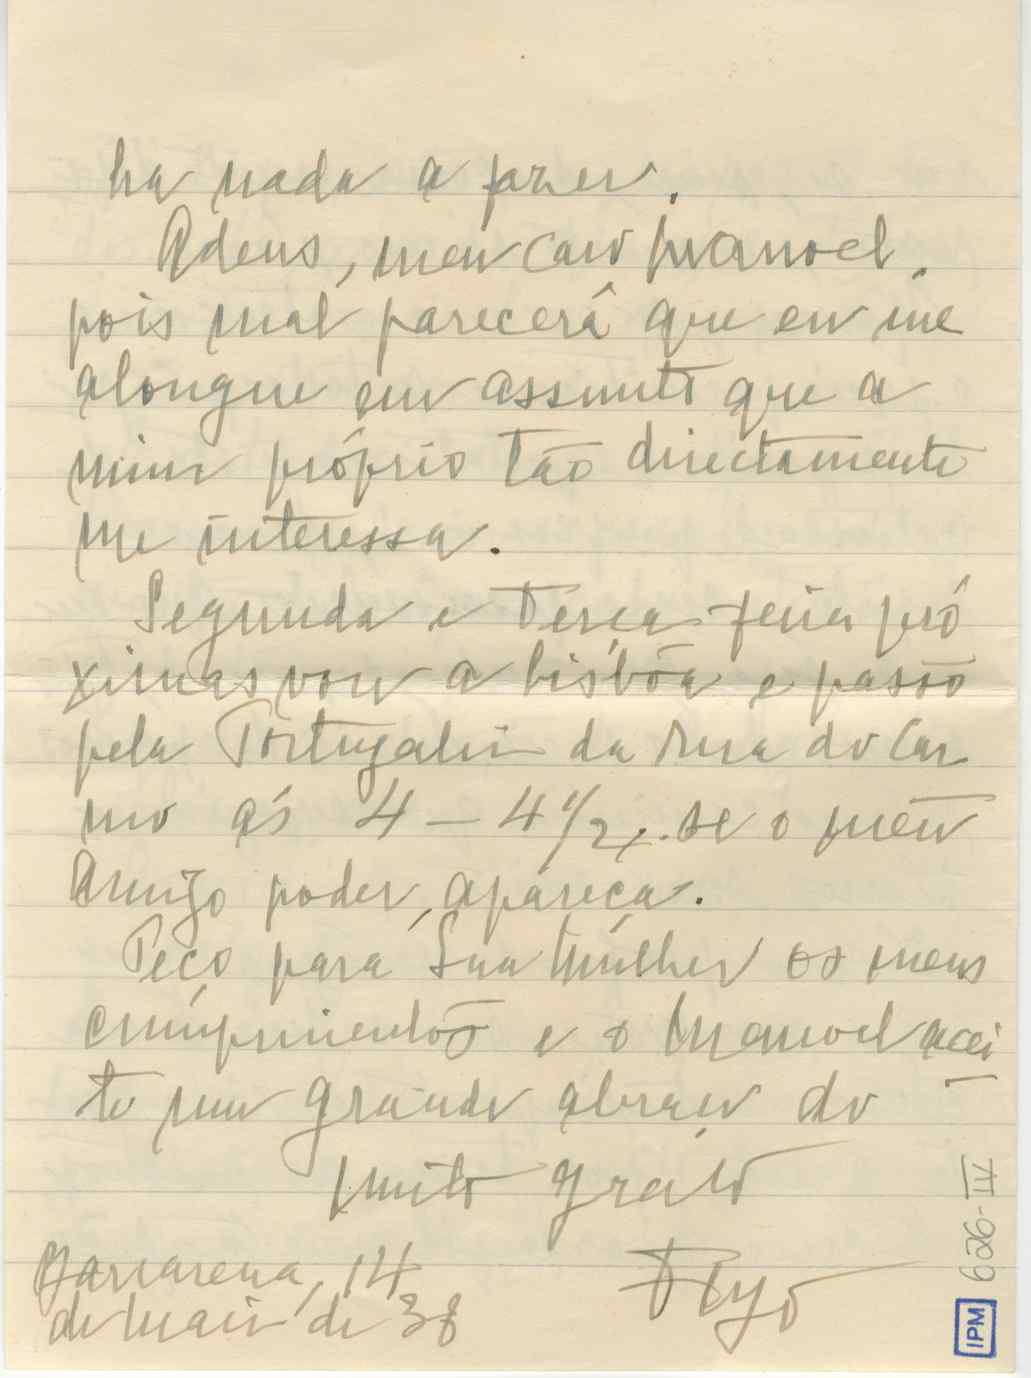 ha nada a fazer.
Adeus, meu caro Manoel,
pois mal parecerá que eu me
alongue em assunto que a
mim próprio tão directamente
me interessa.
Segunda e Terça-feira pró
ximas vou a Lisbôa e passo
pela Portugalia da Rua do Car
mo ás 4 – 4 1/2. se o meu
Amigo poder, apareça.
Peço para Sua Mulher os meus
cumprimentos e o Manoel acei
te um grande abraço do
muito grato
Barcarena, 14
de Maio de 38
626-IV
IPM